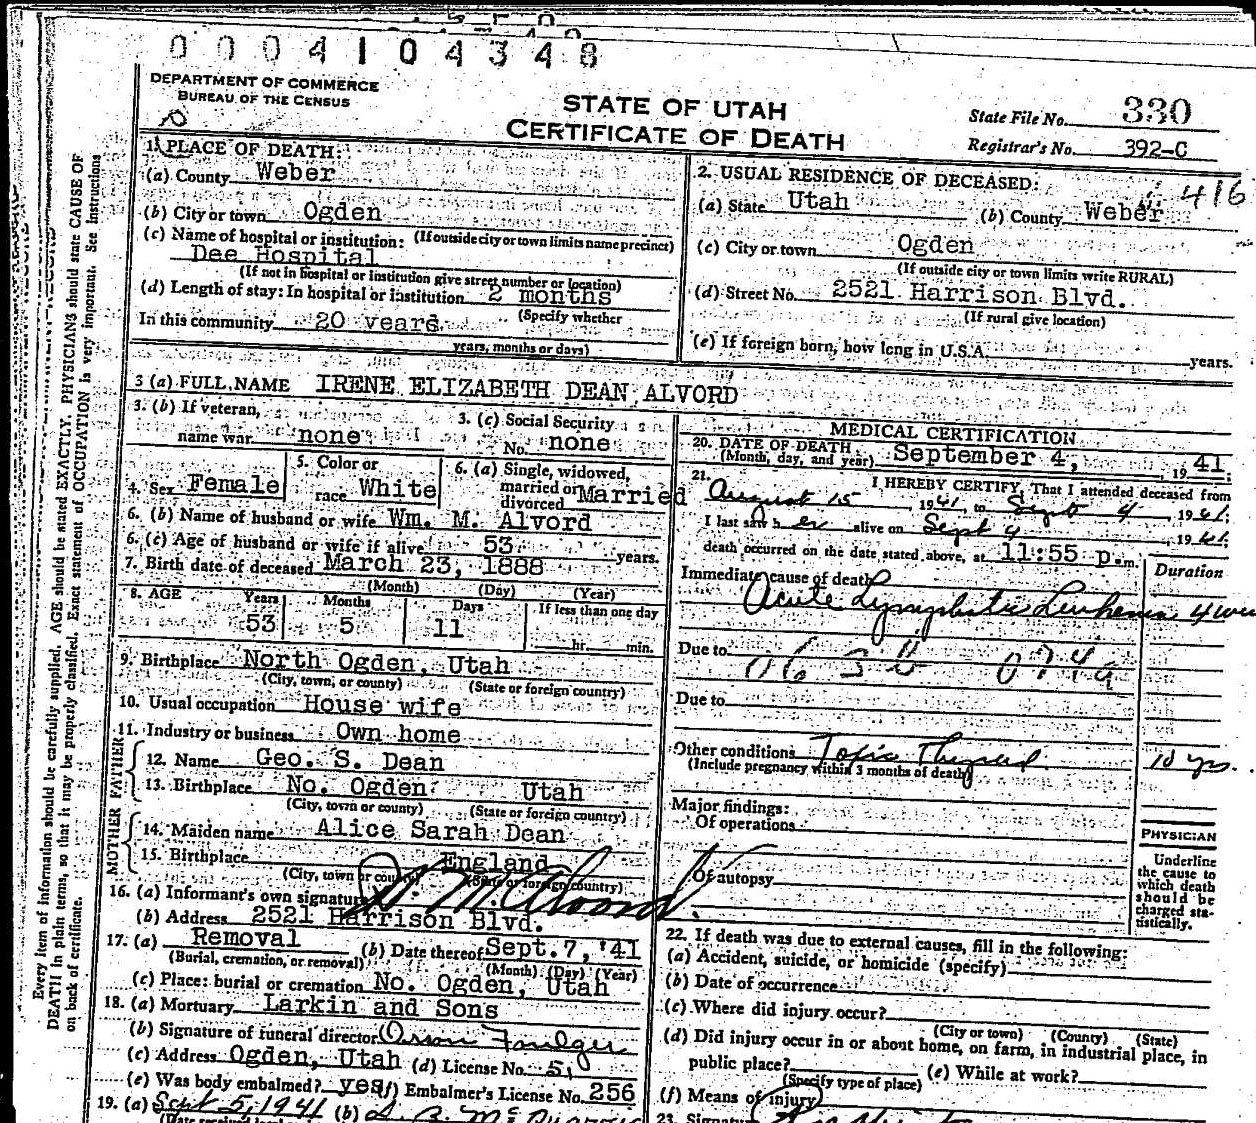 0 0 0 4 1 0 4 3 4 8
DEPARTMENT OF COMMERCE
BUREAU OF THE CENSUS
STATE OF UTAH
CERTIFICATE OF DEATH
State File No. 330
Registrar's No. 392-C
416
Every item of information should be carefully supplied. AGE should be stated EXACTLY. PHYSICIANS should state CAUSE OF
DEATH in plain terms, so that it may be properly classified. Exact statement of OCCUPATION is very important. See Instructions
on back of certificate.
1. PLACE OF DEATH:
(a) County Weber
(b) City or town Ogden
(c) Name of hospital or institution: (If outside city or town limits name precinct)
Dee Hospital
(If not in hospital or institution give street number or location)
(d) Length of stay: In hospital or institution 2 months
(Specify whether
In this community 20 years
years, months or days)
2. USUAL RESIDENCE OF DECEASED:
(a) State Utah (b) County Weber
(c) City or town Ogden
(If outside city or town limits write RURAL)
(d) Street No. 2521 Harrison Blvd.
(If rural give location)
(e) If foreign born, how long in U.S.A. years.
3 (a) FULL NAME IRENE ELIZABETH DEAN ALVORD
3. (b) If veteran,
name war none
3. (c) Social Security
No. none
4. Sex Female
5. Color or
race White
6. (a) Single, widowed,
married or
divorced Married
6. (b) Name of husband or wife Wm. M. Alvord
6. (c) Age of husband or wife if alive 53 years.
7. Birth date of deceased March 23, 1888
(Month) (Day) (Year)
8. AGE Years Months Days If less than one day
53 5 11 hr. min.
9. Birthplace North Ogden, Utah
(City, town, or county) (State or foreign country)
10. Usual occupation House wife
11. Industry or business Own home
FATHER
12. Name Geo. S. Dean
13. Birthplace No. Ogden Utah
(City, town or county) (State or foreign country)
MOTHER
14. Maiden name Alice Sarah Dean
15. Birthplace England
(City, town or county) (State or foreign country)
16. (a) Informant's own signature W. M. Alvord.
(b) Address 2521 Harrison Blvd.
17. (a) Removal (b) Date thereof Sept. 7, '41
(Burial, cremation, or removal) (Month) (Day) (Year)
(c) Place: burial or cremation No. Ogden, Utah
18. (a) Mortuary Larkin and Sons
(b) Signature of funeral director
(c) Address Ogden, Utah (d) License No.
(e) Was body embalmed? yes (f) Embalmer's License No. 256
19. (a) Sept 5, 1941 (b)
MEDICAL CERTIFICATION
20. DATE OF DEATH
(Month, day, and year) September 4, 1941.
21. I HEREBY CERTIFY, That I attended deceased from
August 15, 1941, to Sept 4, 1941.
I last saw her alive on Sept 4, 1941.
death occurred on the date stated above, at 11:55 p.m.
Duration
Immediate cause of death
Acute Lymphatic Leukemia 4
Due to
Due to
Other conditions Toxic Thyroid 10 yrs.
(Include pregnancy within 3 months of death)
Major findings:
Of operations
Of autopsy
PHYSICIAN
Underline
the cause to
which death
should be
charged sta-
tistically.
22. If death was due to external causes, fill in the following:
(a) Accident, suicide, or homicide (specify)
(b) Date of occurrence
(c) Where did injury occur?
(City or town) (County) (State)
(d) Did injury occur in or about home, on farm, in industrial place, in
public place? (e) While at work?
(Specify type of place)
(f) Means of injury